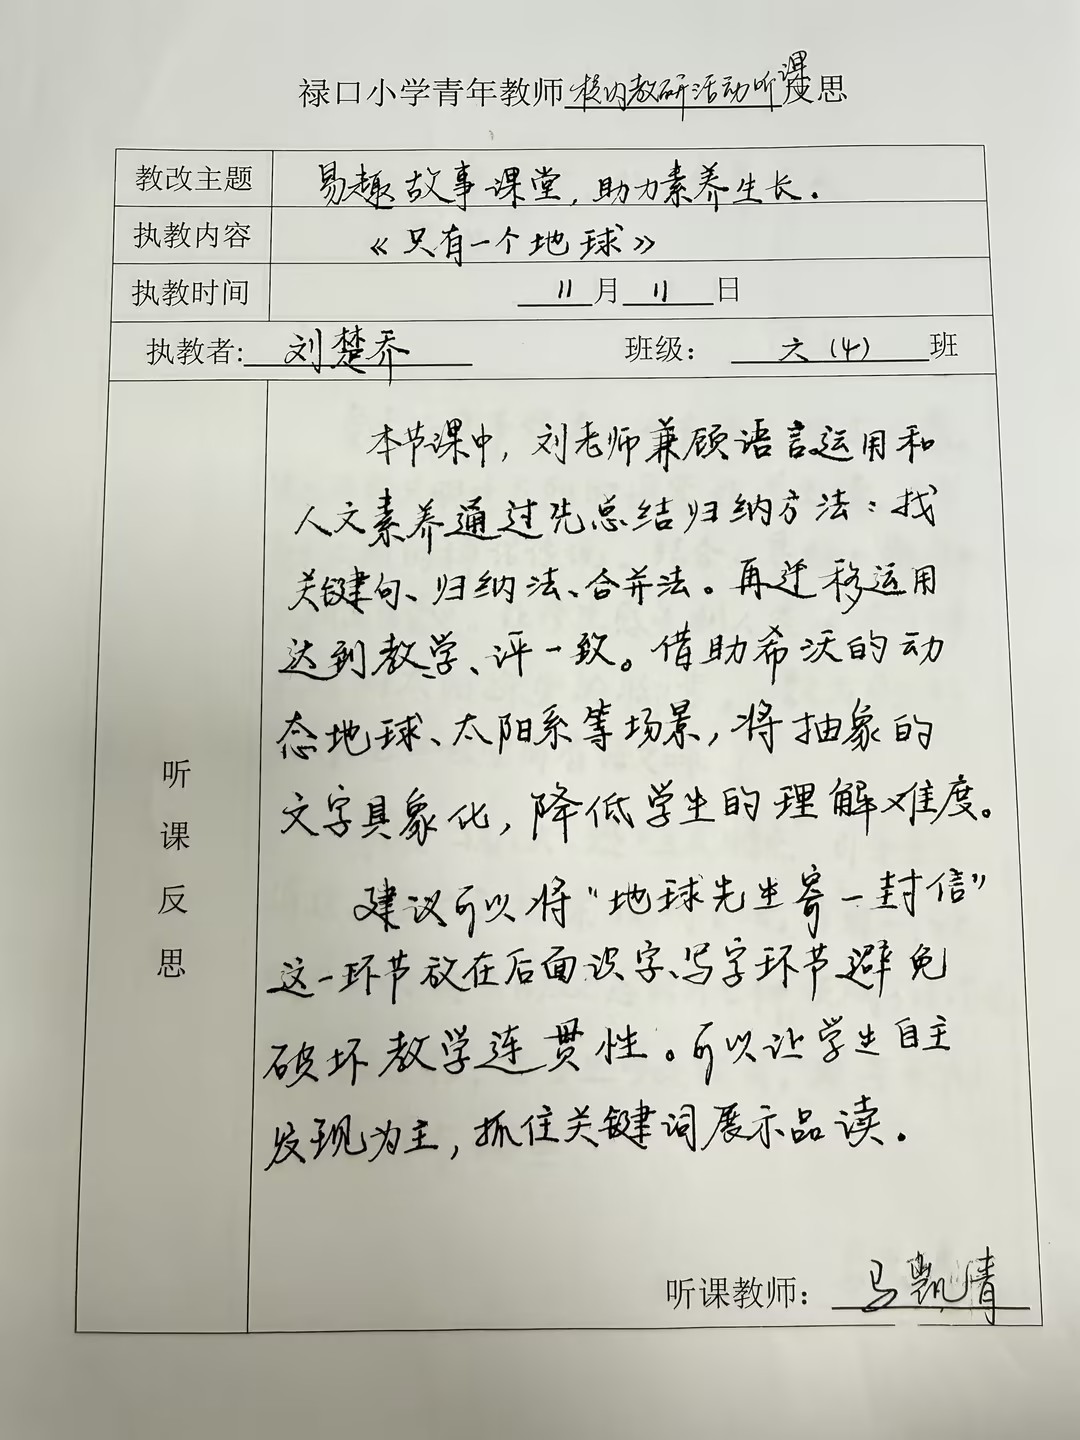 禄口小学青年教师校内教研活动听课反思
教改主题 易趣故事课堂，助力素养生长.
执教内容 《只有一个地球》
执教时间 11月11日
执教者: 刘楚乔 班级： 六（4）班
听课反思
本节课中，刘老师兼顾语言运用和
人文素养通过先总结归纳方法：找
关键句、归纳法、合并法。再迁移运用
达到教、学、评一致。借助希沃的动
态地球、太阳系等场景，将抽象的
文字具象化，降低学生的理解难度。
建议可以将“地球先生寄一封信”
这一环节放在后面识字、写字环节避免
破坏教学连贯性。可以让学生自主
发现为主，抓住关键词展示品读.
听课教师： 马凯清